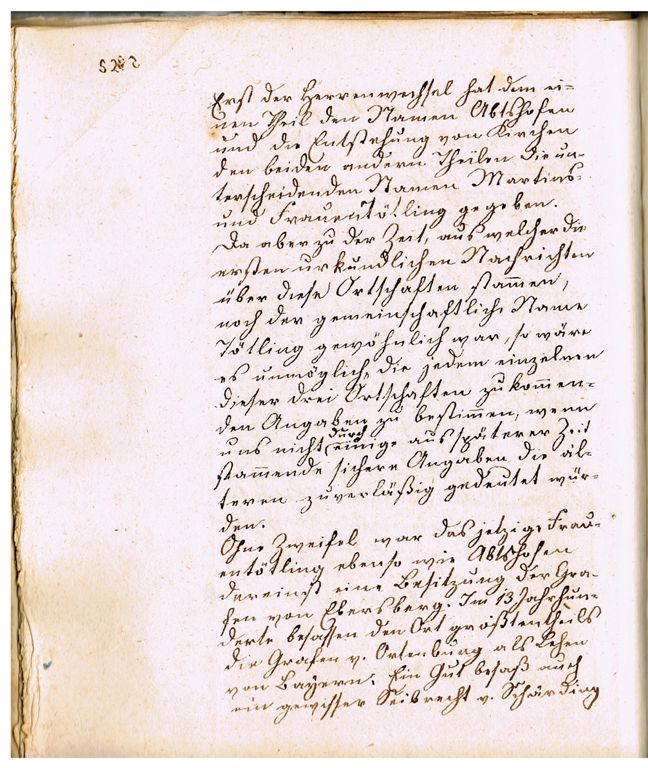 Erst der Herrenwechsel hat dem ei=
nen Theil den Namen Abtshofen
und die Entstehung von Kirchen
den beiden andern Theilen die un-
terscheidenden Namen Martins-
und Frauentötling gegeben.
Da aber zu der Zeit, aus welcher die
ersten urkundlichen Nachrichten
über diese Ortschaften stammen,
noch der gemeinschaftliche Name
Tötling gewöhnlich war, so wäre
es unmöglich, die jedem einzelnen
dieser drei Ortschaften zukommen-
den Angaben zu bestimmen, wenn
uns nicht durch einige aus späterer Zeit
stammende sichere Angaben die äl-
teren zuverläßig gedeutet wür-
den.
Ohne Zweifel war das jetzige Frau-
entötling ebenso wie Abtshofen
dereinst eine Besitzung der Gra-
fen von Ebersberg. Im 13 Jahrhun-
derte besassen den Ort größtentheils
die Grafen v. Ortenburg als Lehen
von Bayern. Ein Gut besaß auch
ein gewisser Seibrecht v. Schärding